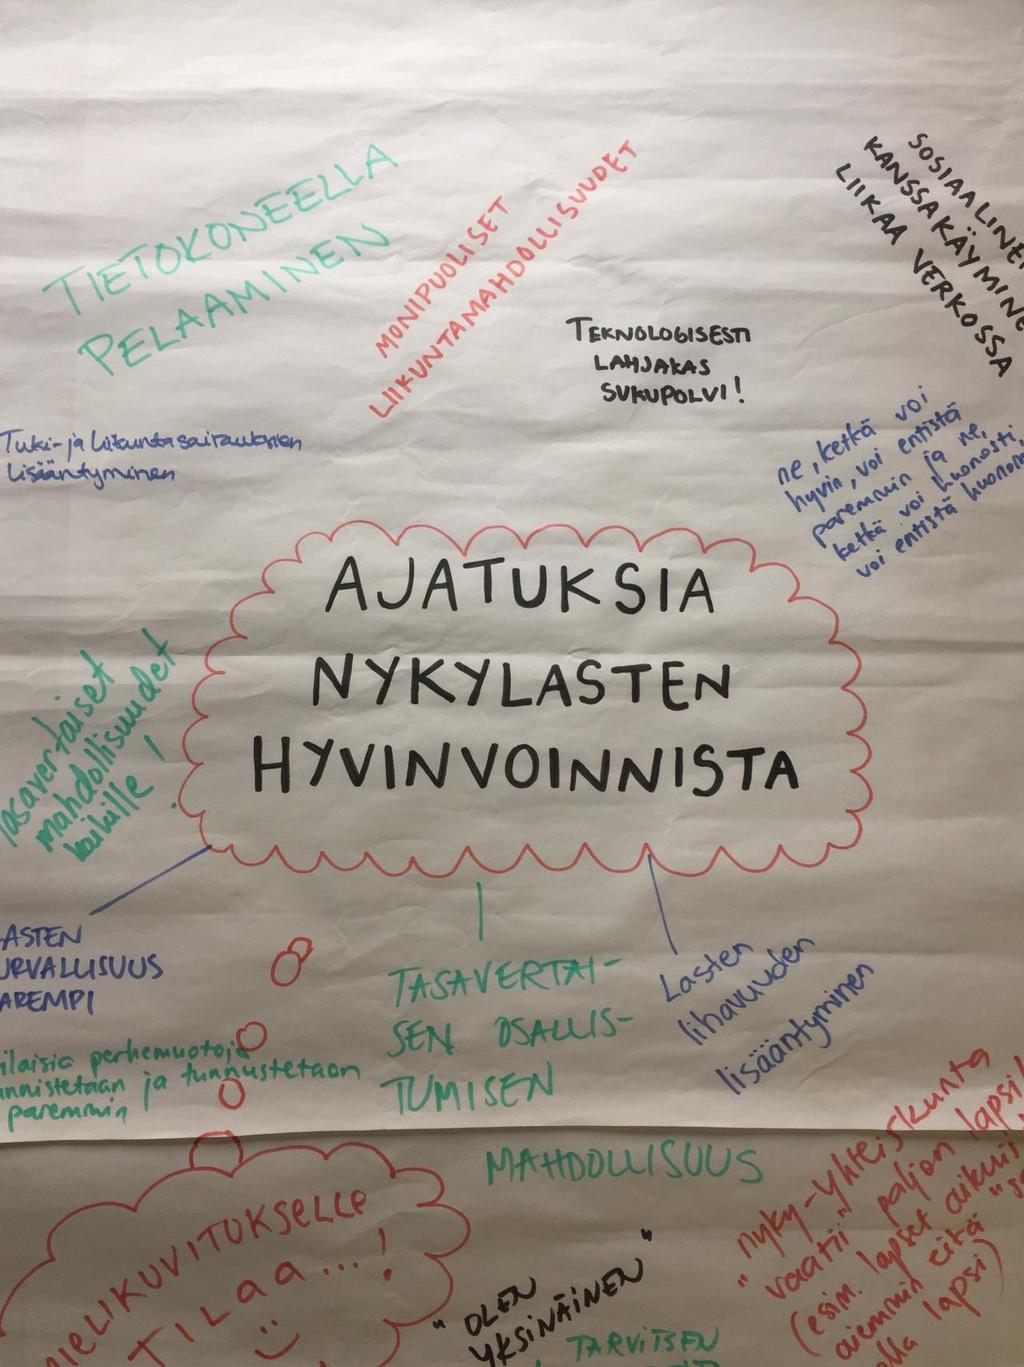 TIETOKONEELLA
PELAAMINEN
MONIPUOLISET
LIIKUNTAMAHDOLLISUUDET
TEKNOLOGISESTI
LAHJAKAS
SUKUPOLVI!
SOSIAALINEN
KANSSAKÄYMINE
LIIKAA VERKOSSA
Tuki- ja liikuntasairauksien
lisääntyminen
ne, ketkä voi
hyvin, voi entistä
paremmin ja ne,
ketkä voi huonosti,
voi entistä huonom
AJATUKSIA
NYKYLASTEN
HYVINVOINNISTA
Tasavertaiset
mahdollisuudet
kaikille!
ASTEN
URVALLISUUS
AREMPI
TASAVERTAI-
SEN OSALLIS-
TUMISEN
MAHDOLLISUUS
Lasten
lihavuuden
lisääntyminen
ilaisia perhemuotoja
nnistetaan ja tunnustetaan
paremmin
MIELIKUVITUKSELLE
TILAA...!
"OLEN
YKSINÄINEN"
TARVITSEN
"nyky-yhteiskunta
vaatii" paljon lapsil
(esim. lapset aikuis
aiemmin eitä
lla lapsi)